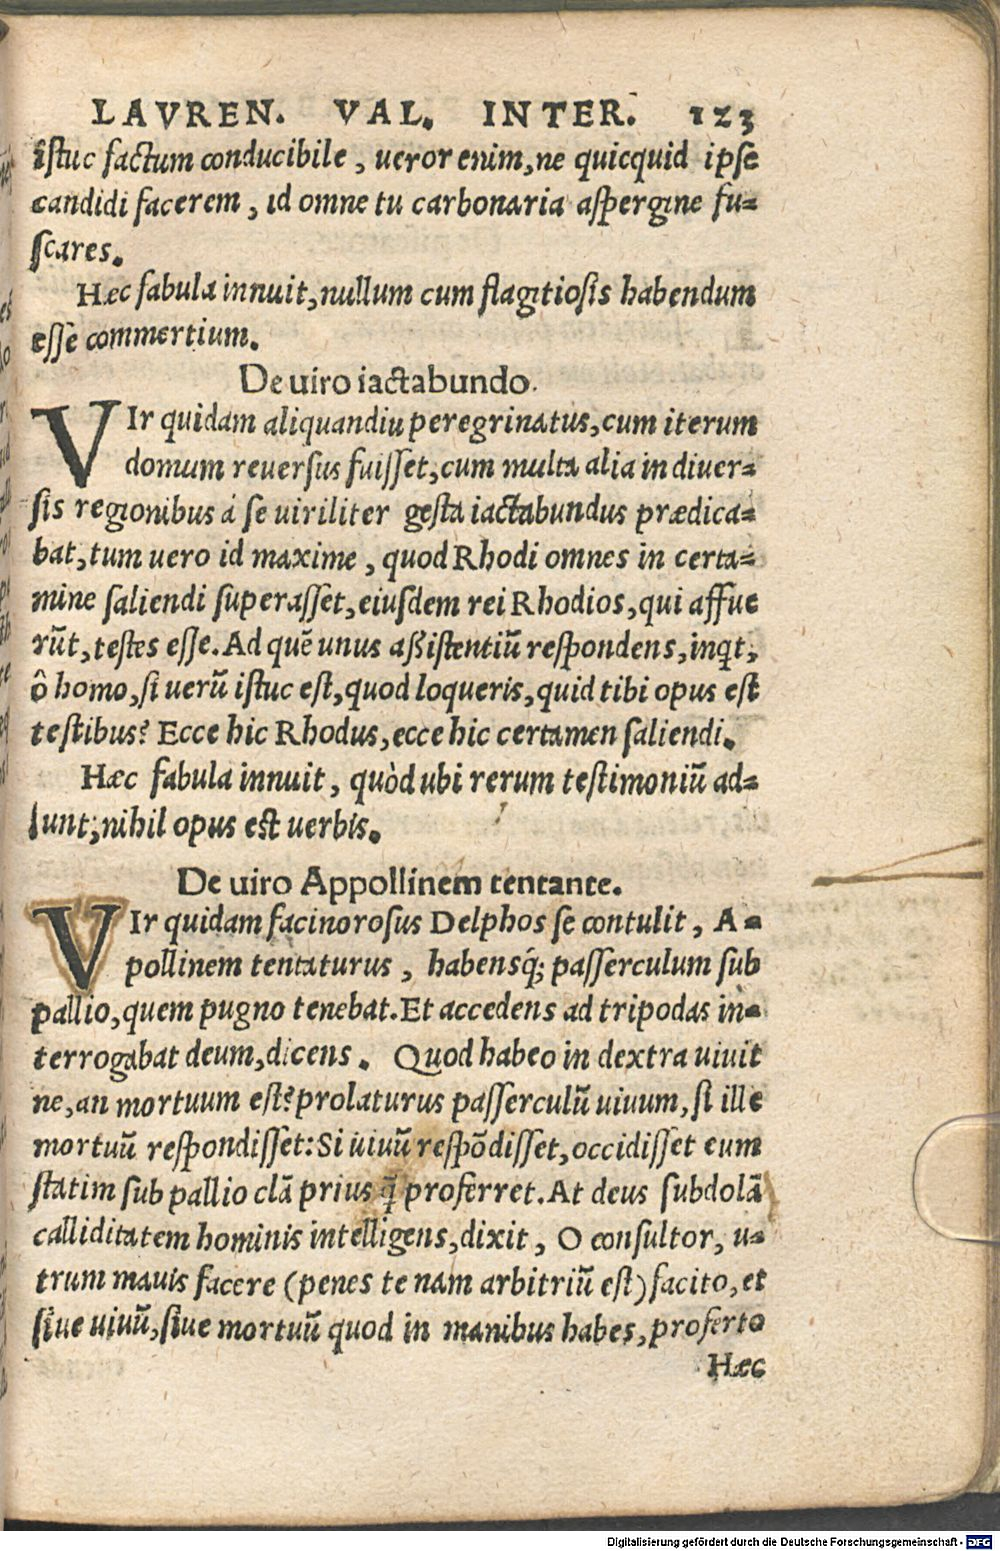 LAVREN. VAL. INTER. 123
istuc factum conducibile, ueror enim, ne quicquid ipse
candidi facerem, id omne tu carbonaria aspergine fu-
scares.
Hæc fabula innuit, nullum cum flagitiosis habendum
esse commertium.
De uiro iactabundo.
VIr quidam aliquandiu peregrinatus, cum iterum
domum reuersus fuisset, cum multa alia in diuer-
sis regionibus á se uiriliter gesta iactabundus prædica-
bat, tum uero id maxime, quod Rhodi omnes in certa-
mine saliendi superasset, eiusdem rei Rhodios, qui affue
rũt, testes esse. Ad quẽ unus aßistentiũ respondens, inqt,
ô homo, si uerũ istuc est, quod loqueris, quid tibi opus est
testibus? Ecce hic Rhodus, ecce hic certamen saliendi.
Hæc fabula innuit, quòd ubi rerum testimoniũ ad-
sunt, nihil opus est uerbis.
De uiro Appollinem tentante.
VIr quidam facinorosus Delphos se contulit, A-
pollinem tentaturus, habensq́; passerculum sub
pallio, quem pugno tenebat. Et accedens ad tripodas in-
terrogabat deum, dicens. Quod habeo in dextra uiuit
ne, an mortuum est? prolaturus passerculũ uiuum, si ille
mortuũ respondisset: Si uiuũ respõdisset, occidisset eum
statim sub pallio clã prius q̃ proferret. At deus subdolã
calliditatem hominis intelligens, dixit, O consultor, u-
trum mauis facere (penes te nam arbitriũ est) facito, et
siue uiuũ, siue mortuũ quod in manibus habes, proferto
Hæc
Digitalisierung gefördert durch die Deutsche Forschungsgemeinschaft - DFG